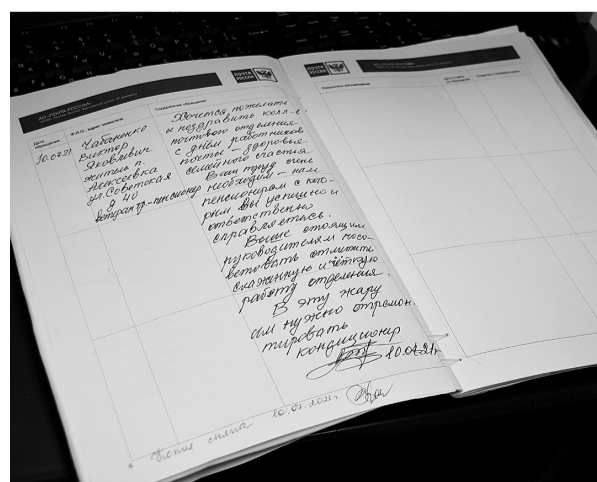 АО «ПОЧТА РОССИИ»
ПОЧТА РОССИИ
Дата обращения
Ф.И.О., адрес заявителя
Содержание обращения
10.07.21
Чабаненко
Виктор
Яковлевич
житель п.
Алексеевка
ул. Советская
д 40
ветеран тр-пенсионер
Хочется пожелать
и поздравить колл-в
почтового отделения
с днём работников
почты - здоровья
семейного счастья
Ваш труд очень
необходим - нам
пенсионерам с кото-
рым Вы успешно и
ответственно
справляетесь.
Выше стоящим
руководителям посо-
ветовать отметить
слаженную и чёткую
работу отделения.
В эту жару
им нужно отремон-
тировать
кондиционер
10.07.21г
10.07.2021г
ПОЧТА РОССИИ